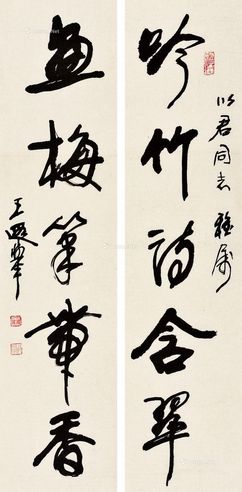 以君同志 雅属
吟竹诗含翠
畫梅筆帶香
王遐举